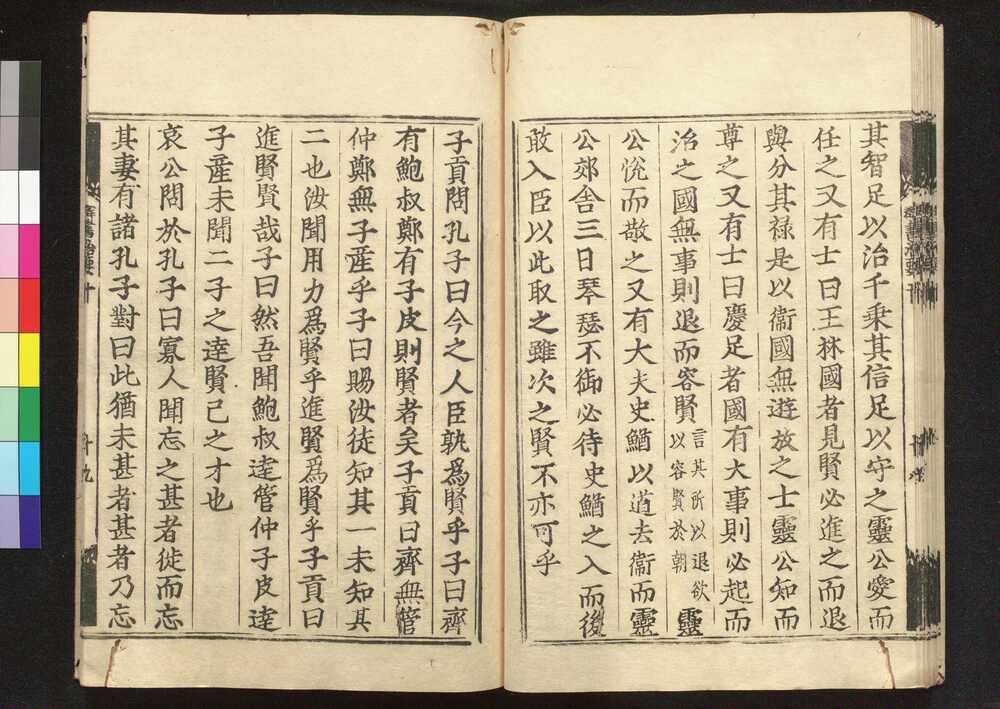 其智足以治千乗其信足以守之靈公愛而
任之又有士曰王林國者見賢必進之而退
與分其禄是以衞國無遊放之士靈公知而
尊之又有士曰慶足者國有大事則必起而
治之國無事則退而容賢言其所以退欲以容賢於朝靈
公恱而敬之又有大夫史鰌以道去衞而靈
公郊舎三日琴瑟不御必待史鰌之入而後
敢入臣以此取之雖次之賢不亦可乎
子貢問孔子曰今之人臣孰爲賢乎子曰齊
有鮑叔鄭有子皮則賢者矣子貢曰齊無管
仲鄭無子產乎子曰賜汝徒知其一未知其
二也汝聞用力爲賢乎進賢爲賢乎子貢曰
進賢賢哉子曰然吾聞鮑叔逹管仲子皮逹
子產未聞二子之逹賢己之才也
哀公問於孔子曰寡人聞忘之甚者徙而忘
其妻有諸孔子對曰此猶未甚者甚者乃忘
羣書治要十
十九